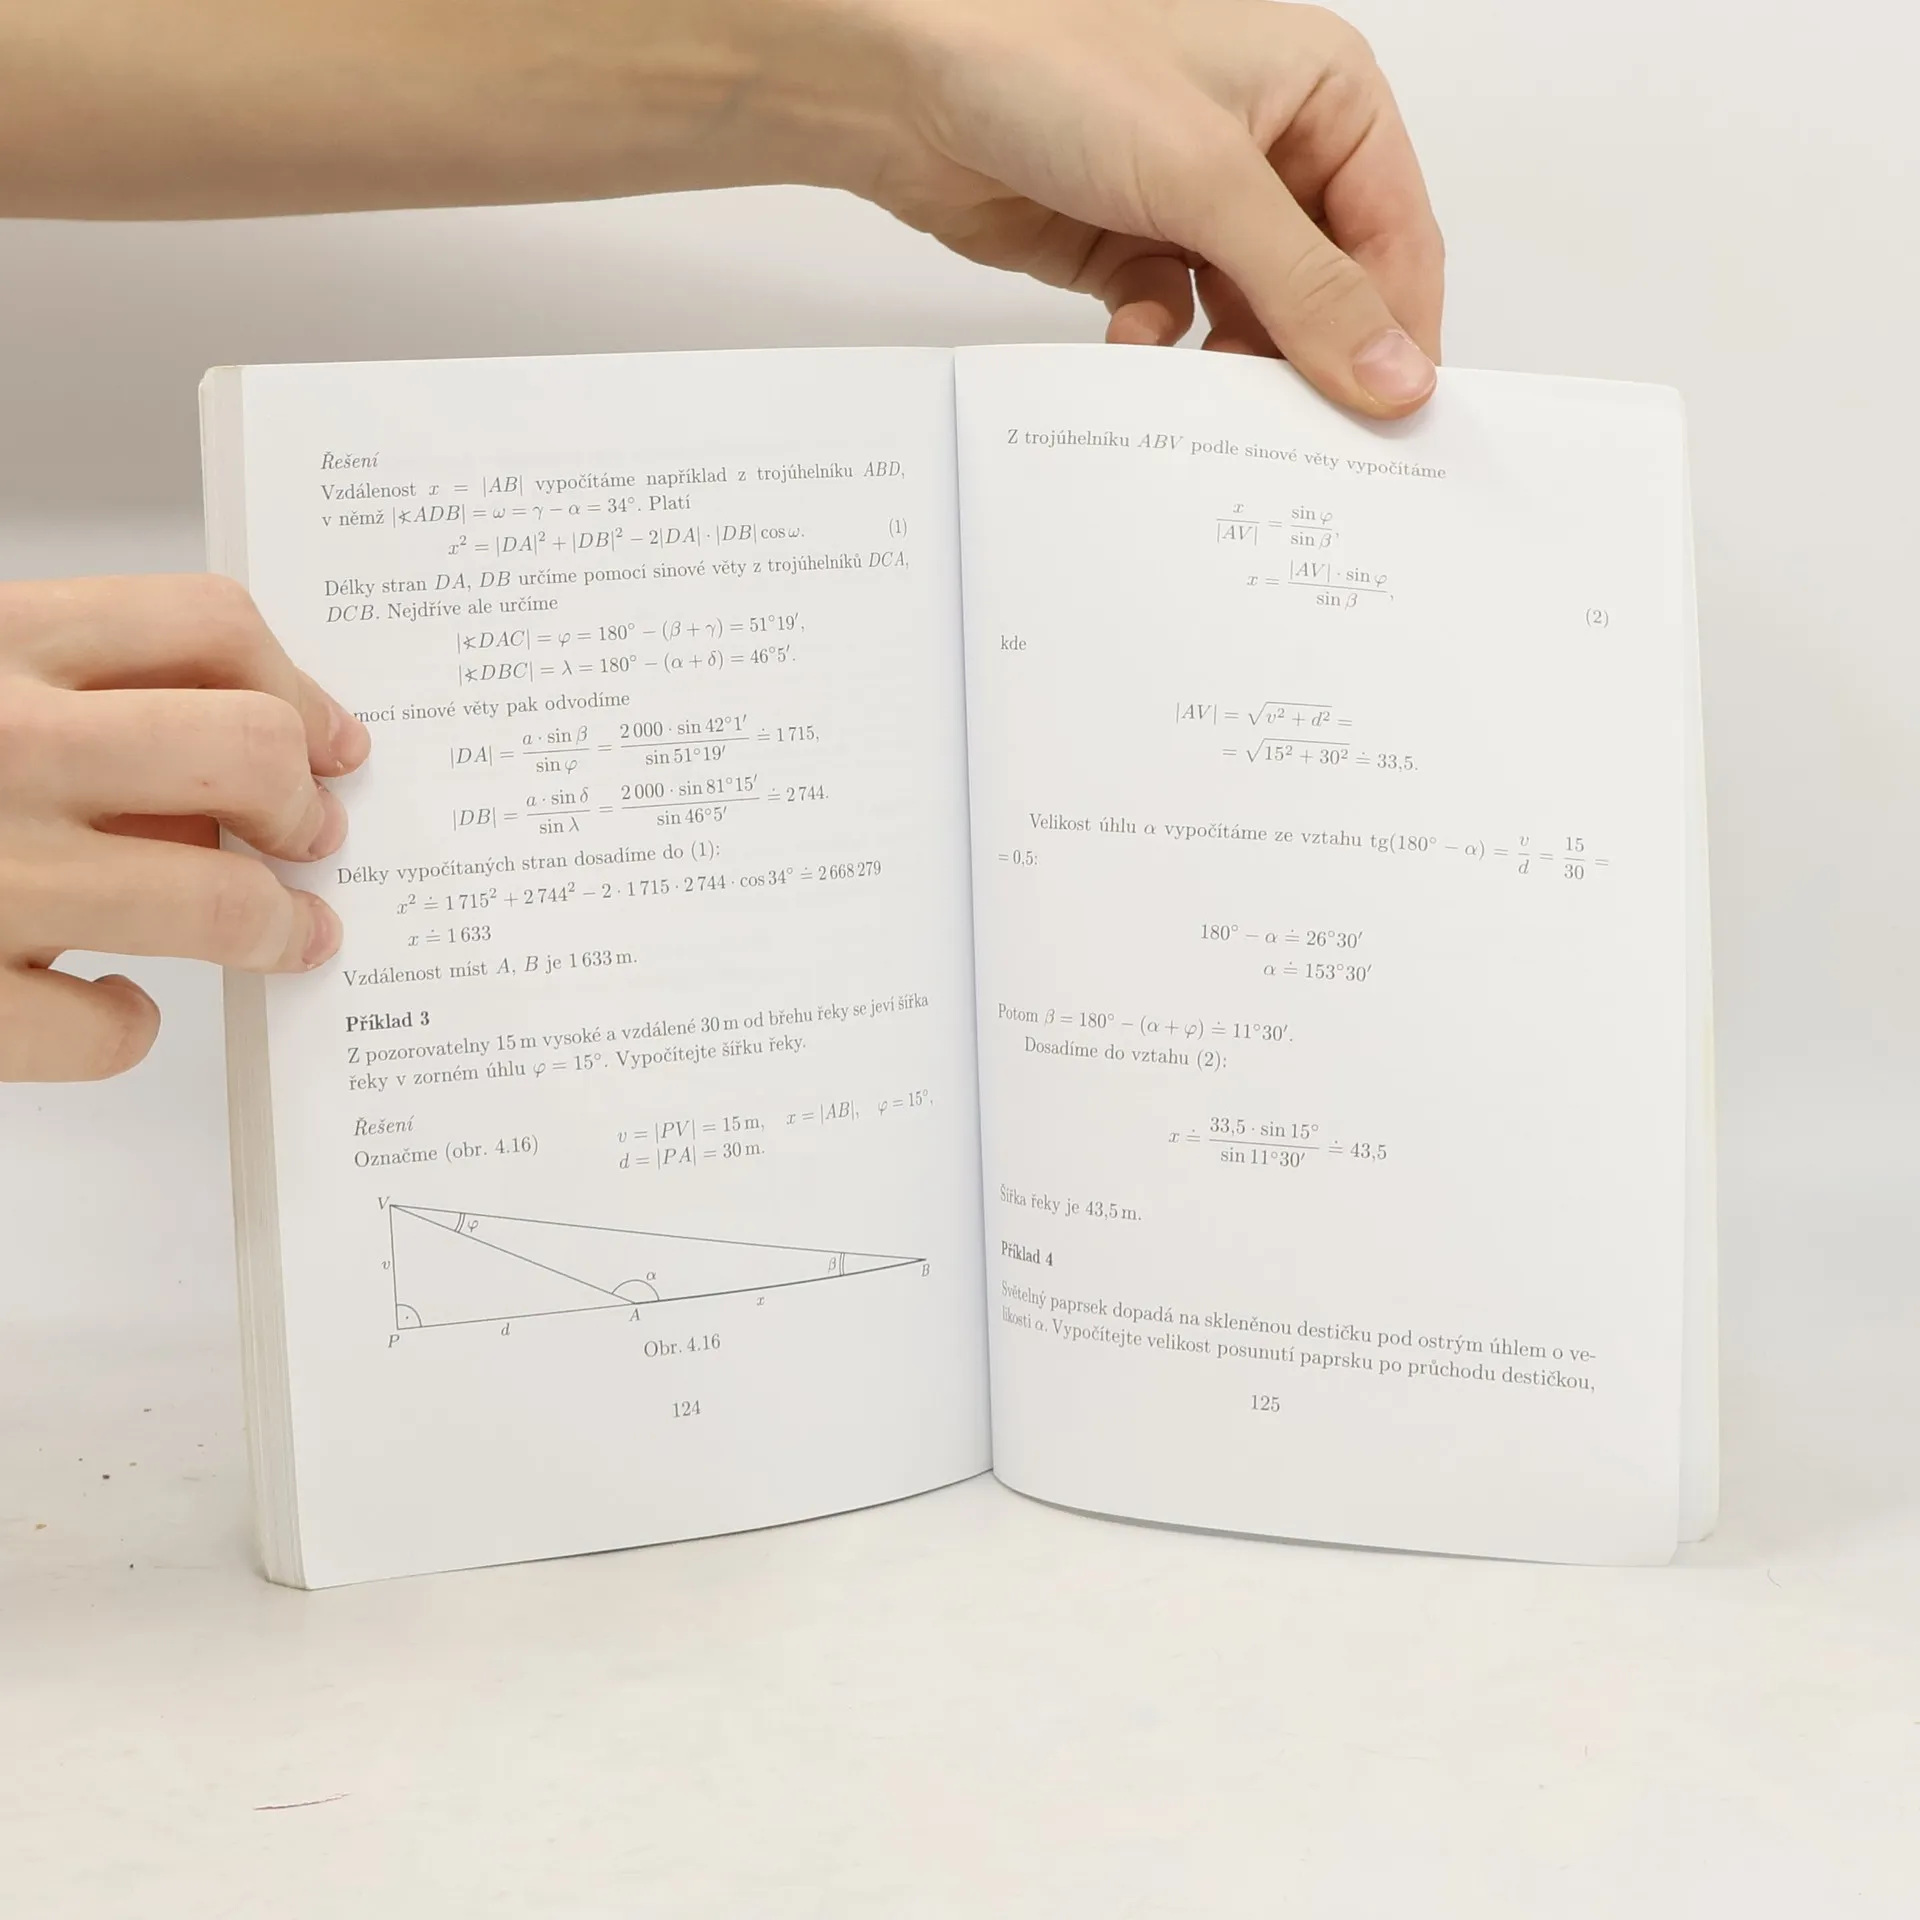 Řešení
Vzdálenost x = |AB| vypočítáme například z trojúhelníku ABD,
v němž |∢ADB| = ω = γ − α = 34°. Platí
x² = |DA|² + |DB|² − 2|DA| · |DB| cos ω. (1)
Délky stran DA, DB určíme pomocí sinové věty z trojúhelníků DCA,
DCB. Nejdříve ale určíme
|∢DAC| = φ = 180° − (β + γ) = 51°19′,
|∢DBC| = λ = 180° − (α + δ) = 46°5′.
mocí sinové věty pak odvodíme
|DA| = a · sin β / sin φ = 2 000 · sin 42°1′ / sin 51°19′ ≐ 1 715,
|DB| = a · sin δ / sin λ = 2 000 · sin 81°15′ / sin 46°5′ ≐ 2 744.
Délky vypočítaných stran dosadíme do (1):
x² ≐ 1 715² + 2 744² − 2 · 1 715 · 2 744 · cos 34° ≐ 2 668 279
x ≐ 1 633
Vzdálenost míst A, B je 1 633 m.
Příklad 3
Z pozorovatelny 15 m vysoké a vzdálené 30 m od břehu řeky se jeví šířka
řeky v zorném úhlu φ = 15°. Vypočítejte šířku řeky.
Řešení
Označme (obr. 4.16) v = |PV| = 15 m, x = |AB|, φ = 15°,
d = |PA| = 30 m.
V
φ
v
β
B
α
x
A
d
P
Obr. 4.16
124
Z trojúhelníku ABV podle sinové věty vypočítáme
x / |AV| = sin φ / sin β,
x = |AV| · sin φ / sin β, (2)
kde
|AV| = √(v² + d²) =
= √(15² + 30²) ≐ 33,5.
Velikost úhlu α vypočítáme ze vztahu tg(180° − α) = v / d = 15 / 30 =
= 0,5:
180° − α ≐ 26°30′
α ≐ 153°30′
Potom β = 180° − (α + φ) ≐ 11°30′.
Dosadíme do vztahu (2):
x ≐ 33,5 · sin 15° / sin 11°30′ ≐ 43,5
Šířka řeky je 43,5 m.
Příklad 4
Světelný paprsek dopadá na skleněnou destičku pod ostrým úhlem o ve-
likosti α. Vypočítejte velikost posunutí paprsku po průchodu destičkou,
125